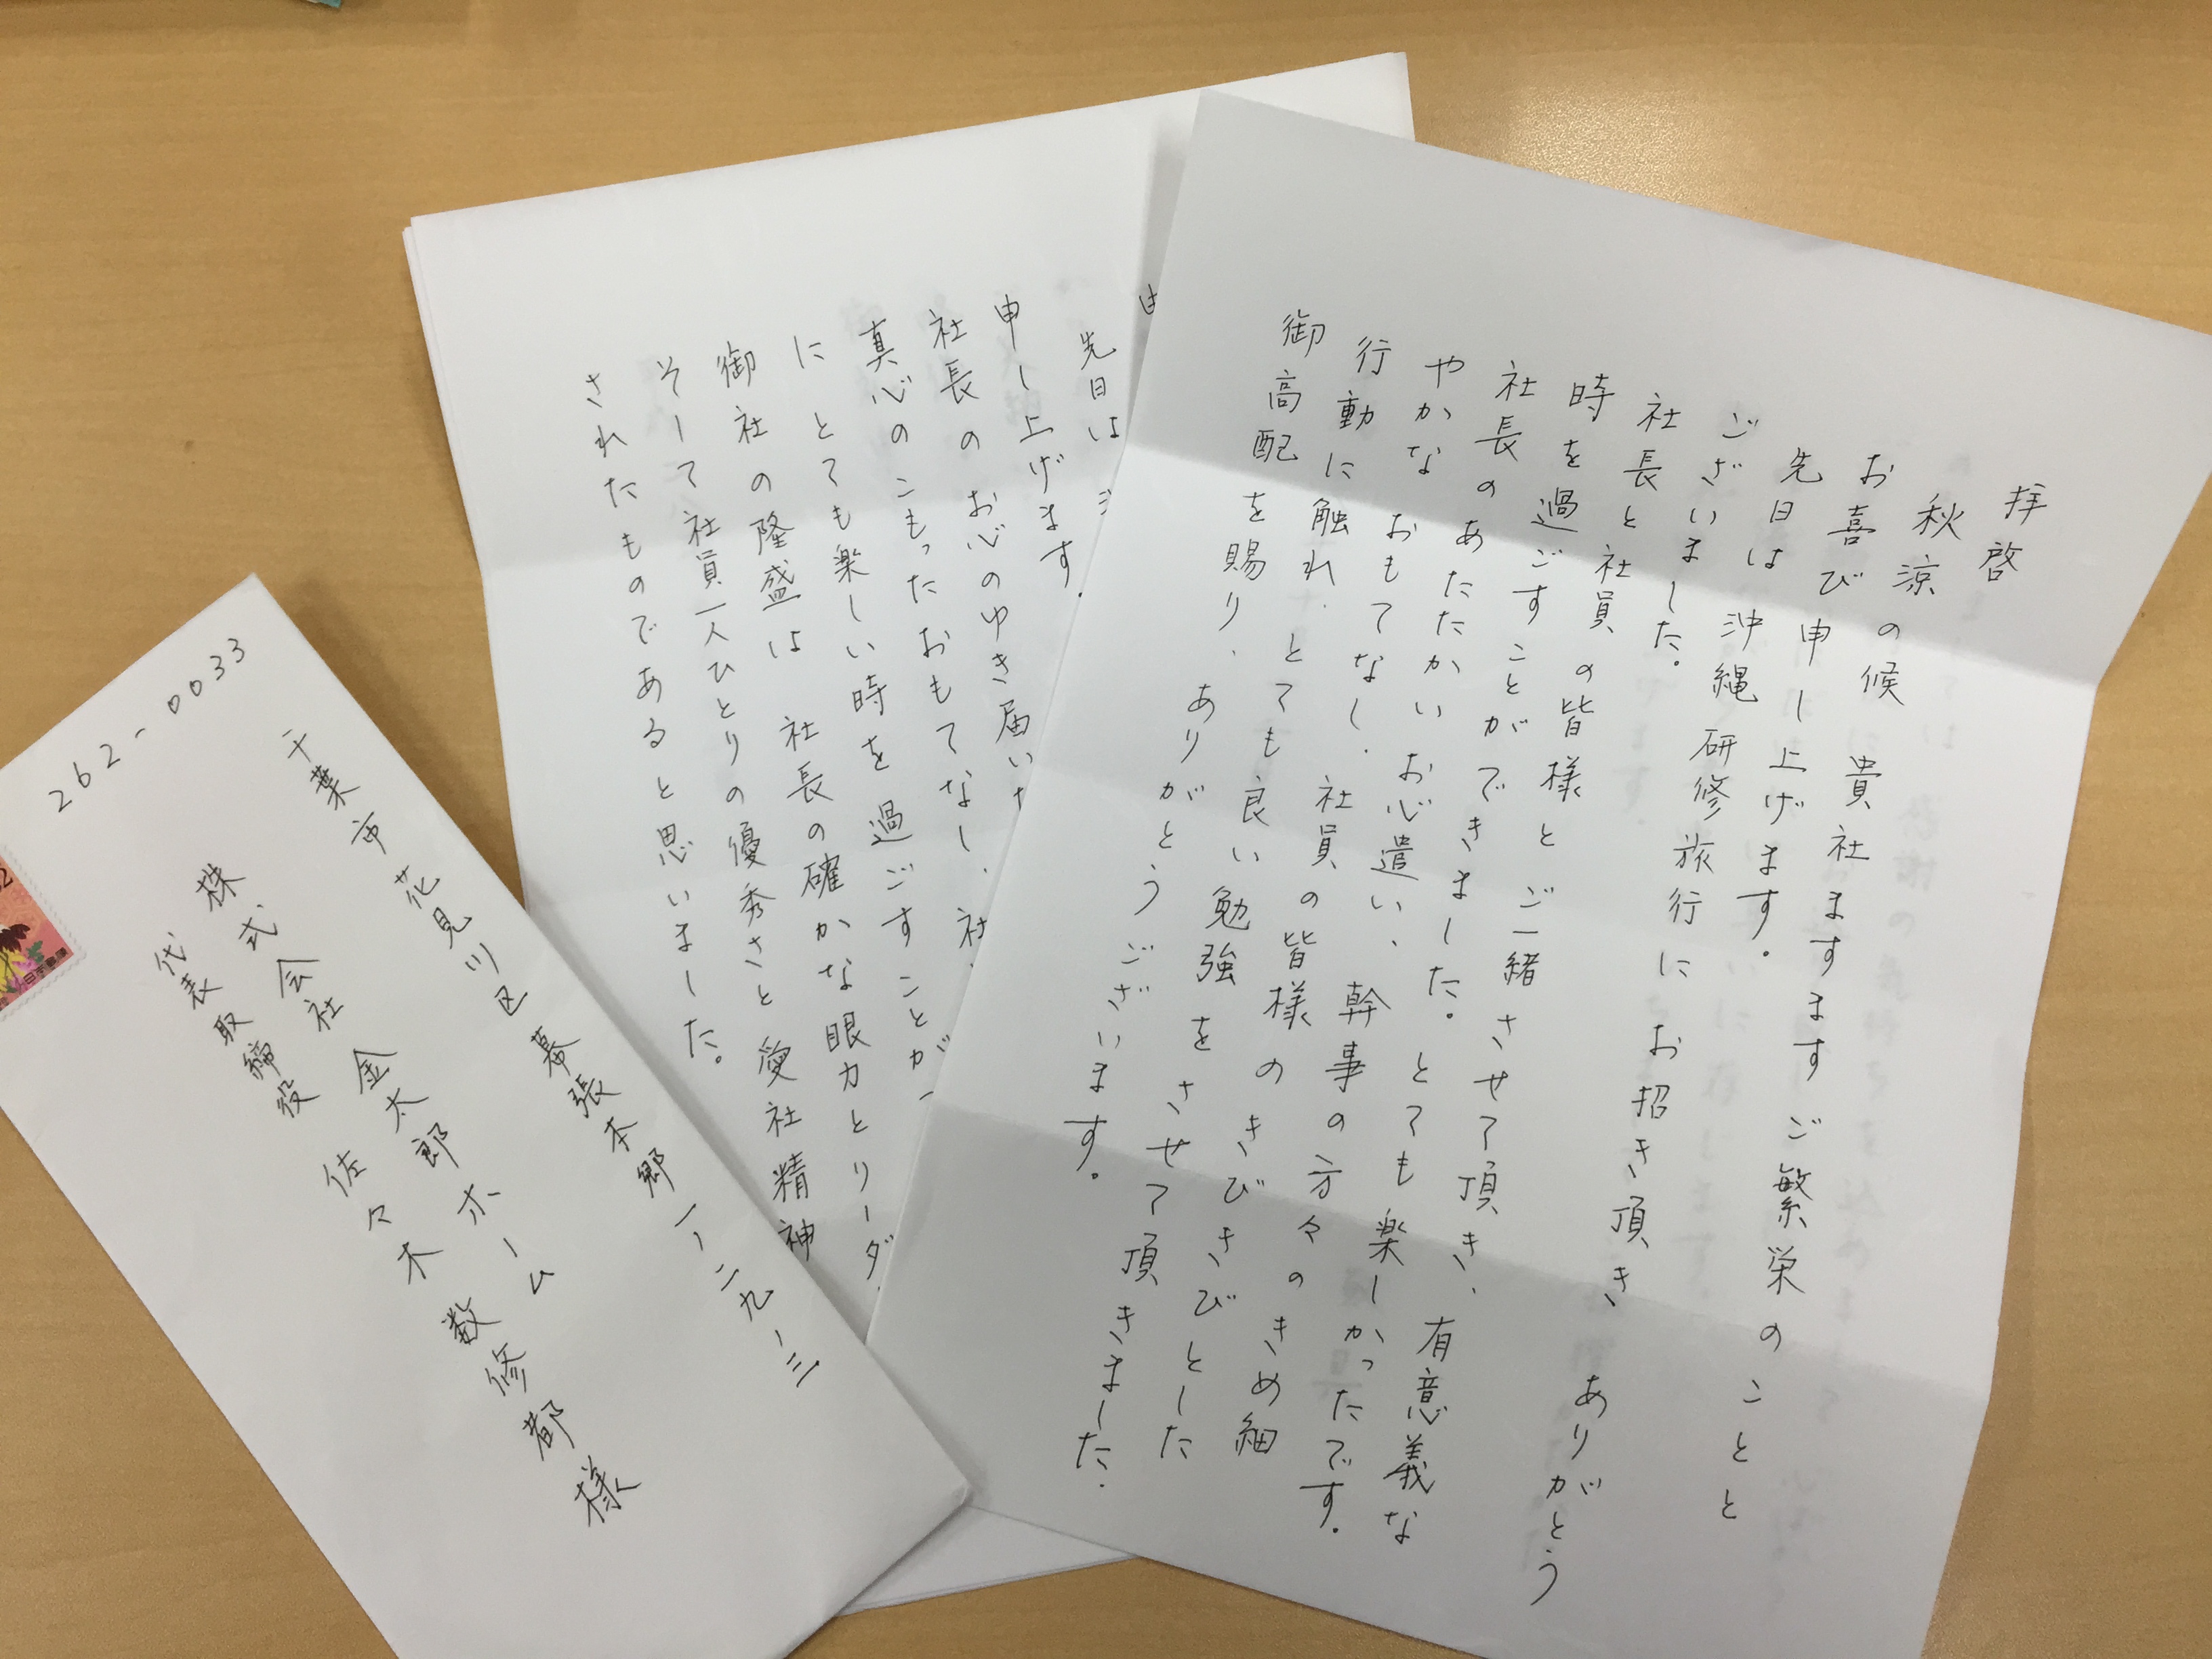 拝啓
秋涼の候 貴社ますます ご繁栄のことと
お喜び申し上げます。
先日は 沖縄研修旅行に お招き頂き ありがとう
ございました。
社長と社員の皆様と ご一緒させて頂き、有意義な
時を過ごすことができました。とても楽しかったです。
社長のあたたかいお心遣い、幹事の方々のきめ細
やかな おもてなし、社員の皆様のきびきびとした
行動に触れ、とても良い勉強を させて頂きました。
御高配を賜り、ありがとうございます。
先日は
申し上げます。
社長の お心のゆき届い
真心のこもったおもてなし、社
に とても楽しい時を過ごすことが
御社の隆盛は 社長の確かな眼力とリーダ
そして社員一人ひとりの優秀さと 愛社精神
されたものであると思いました。
262-0033
千葉市花見川区幕張本郷一ー二九ー三
株式会社 金太郎ホーム
代表取締役 佐々木 数修都様
日本郵便